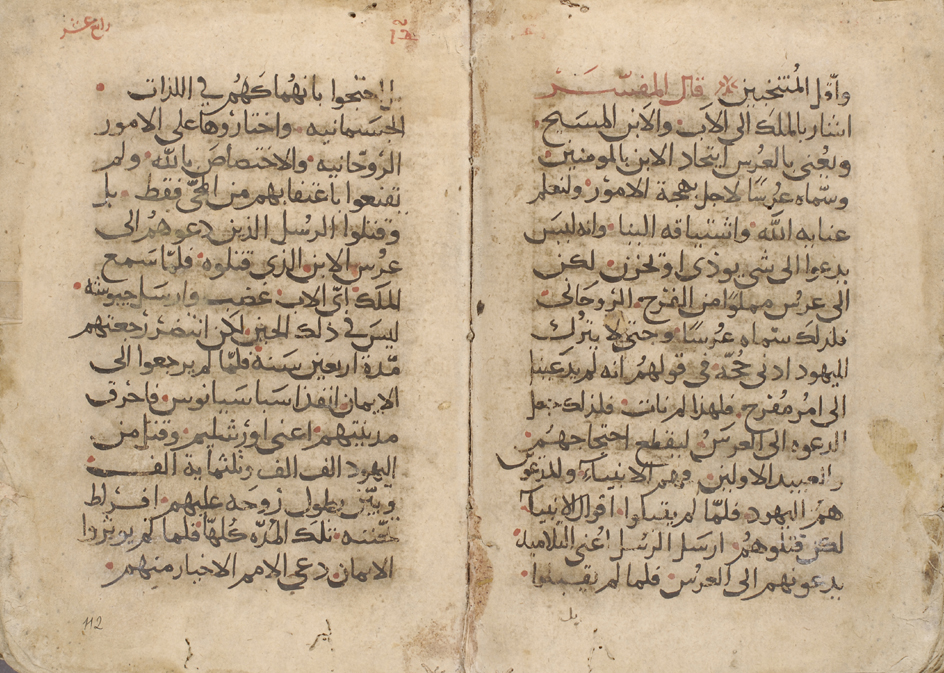 واقل المنتخبين قال المفسّر
اشار بالملك الى الآب والابن المسيح
ويعنى بالعرس ايتحاد الابن بالمومنين
وسمّاه عرسًا لاجل بهجة الامور ولنعلم
عنايه الله واشتياقه الينا وانه ليس
يدعوا الى شى يوذى او لحزن لكن
الى عرس مملوًا من الفرح الروحانى
فلذلك سمّاه عرسًا وحتى لا يترك
لليهود ادنى حُجّه فى قولهم انه لم يدعينا
الى امر مُفرح فلهذا لم نات فلذلك جعل
الدعوه الى العرس ليقطع احتجاجهم
والعبيد الاولين فهم الانبياء والمدعوّين
هم اليهود فلمّا لم يقبلوا اقوال الانبيا
لكن قتلوهم ارسل الرسل اعنى التلاميذ
يدعونهم الى العرس فلما لم يقبلوا
بل
رابع عشر
بل احتجّوا بانهماكهم فى اللذات
الجسمانيه واختاروها على الامور
الروحانيه والاختصاص بالله ولم
يقنعوا باعتفايهم من المجى فقط بل
وقتلوا الرسل الذين دعوهم الى
عرس الابن الذى قتلوه فلمّا سمع
الملك اىّ الاب غضب وارسل جيوشه
ليس فى ذلك الحين لكن انتضر رجعتهم
مدّة اربعين سنة فلمّا لم يرجعوا الى
الايمان انفذ اسباسيانوس فاحرق
مدينتهم اعنى اورشليم وقتل من
اليهود الف الف وثلثماية الف
وبيّن بطول روحه عليهم افراط
محبّته تلك المدّه كلها فلما لم يوثروا
الايمان دعى الامم الاخيار منهم
112